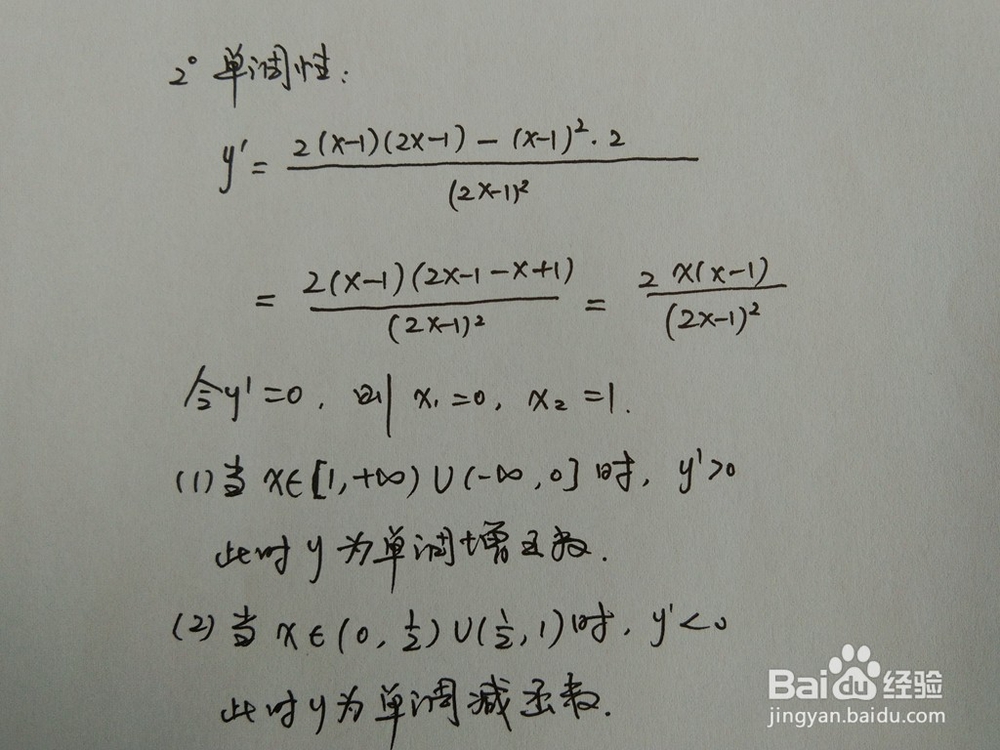 2° 单调性:
y' = 2(x-1)(2x-1) - (x-1)²·2 / (2x-1)²
= 2(x-1)(2x-1-x+1) / (2x-1)² = 2x(x-1) / (2x-1)²
令y'=0, 则 x₁=0, x₂=1.
(1)当 x∈[1,+∞)∪(-∞,0]时, y'>0
此时 y 为单调增函数.
(2)当 x∈(0,½)∪(½,1)时, y'<0
此时y为单调减函数.
Baidu经验
jingyan.baidu.com